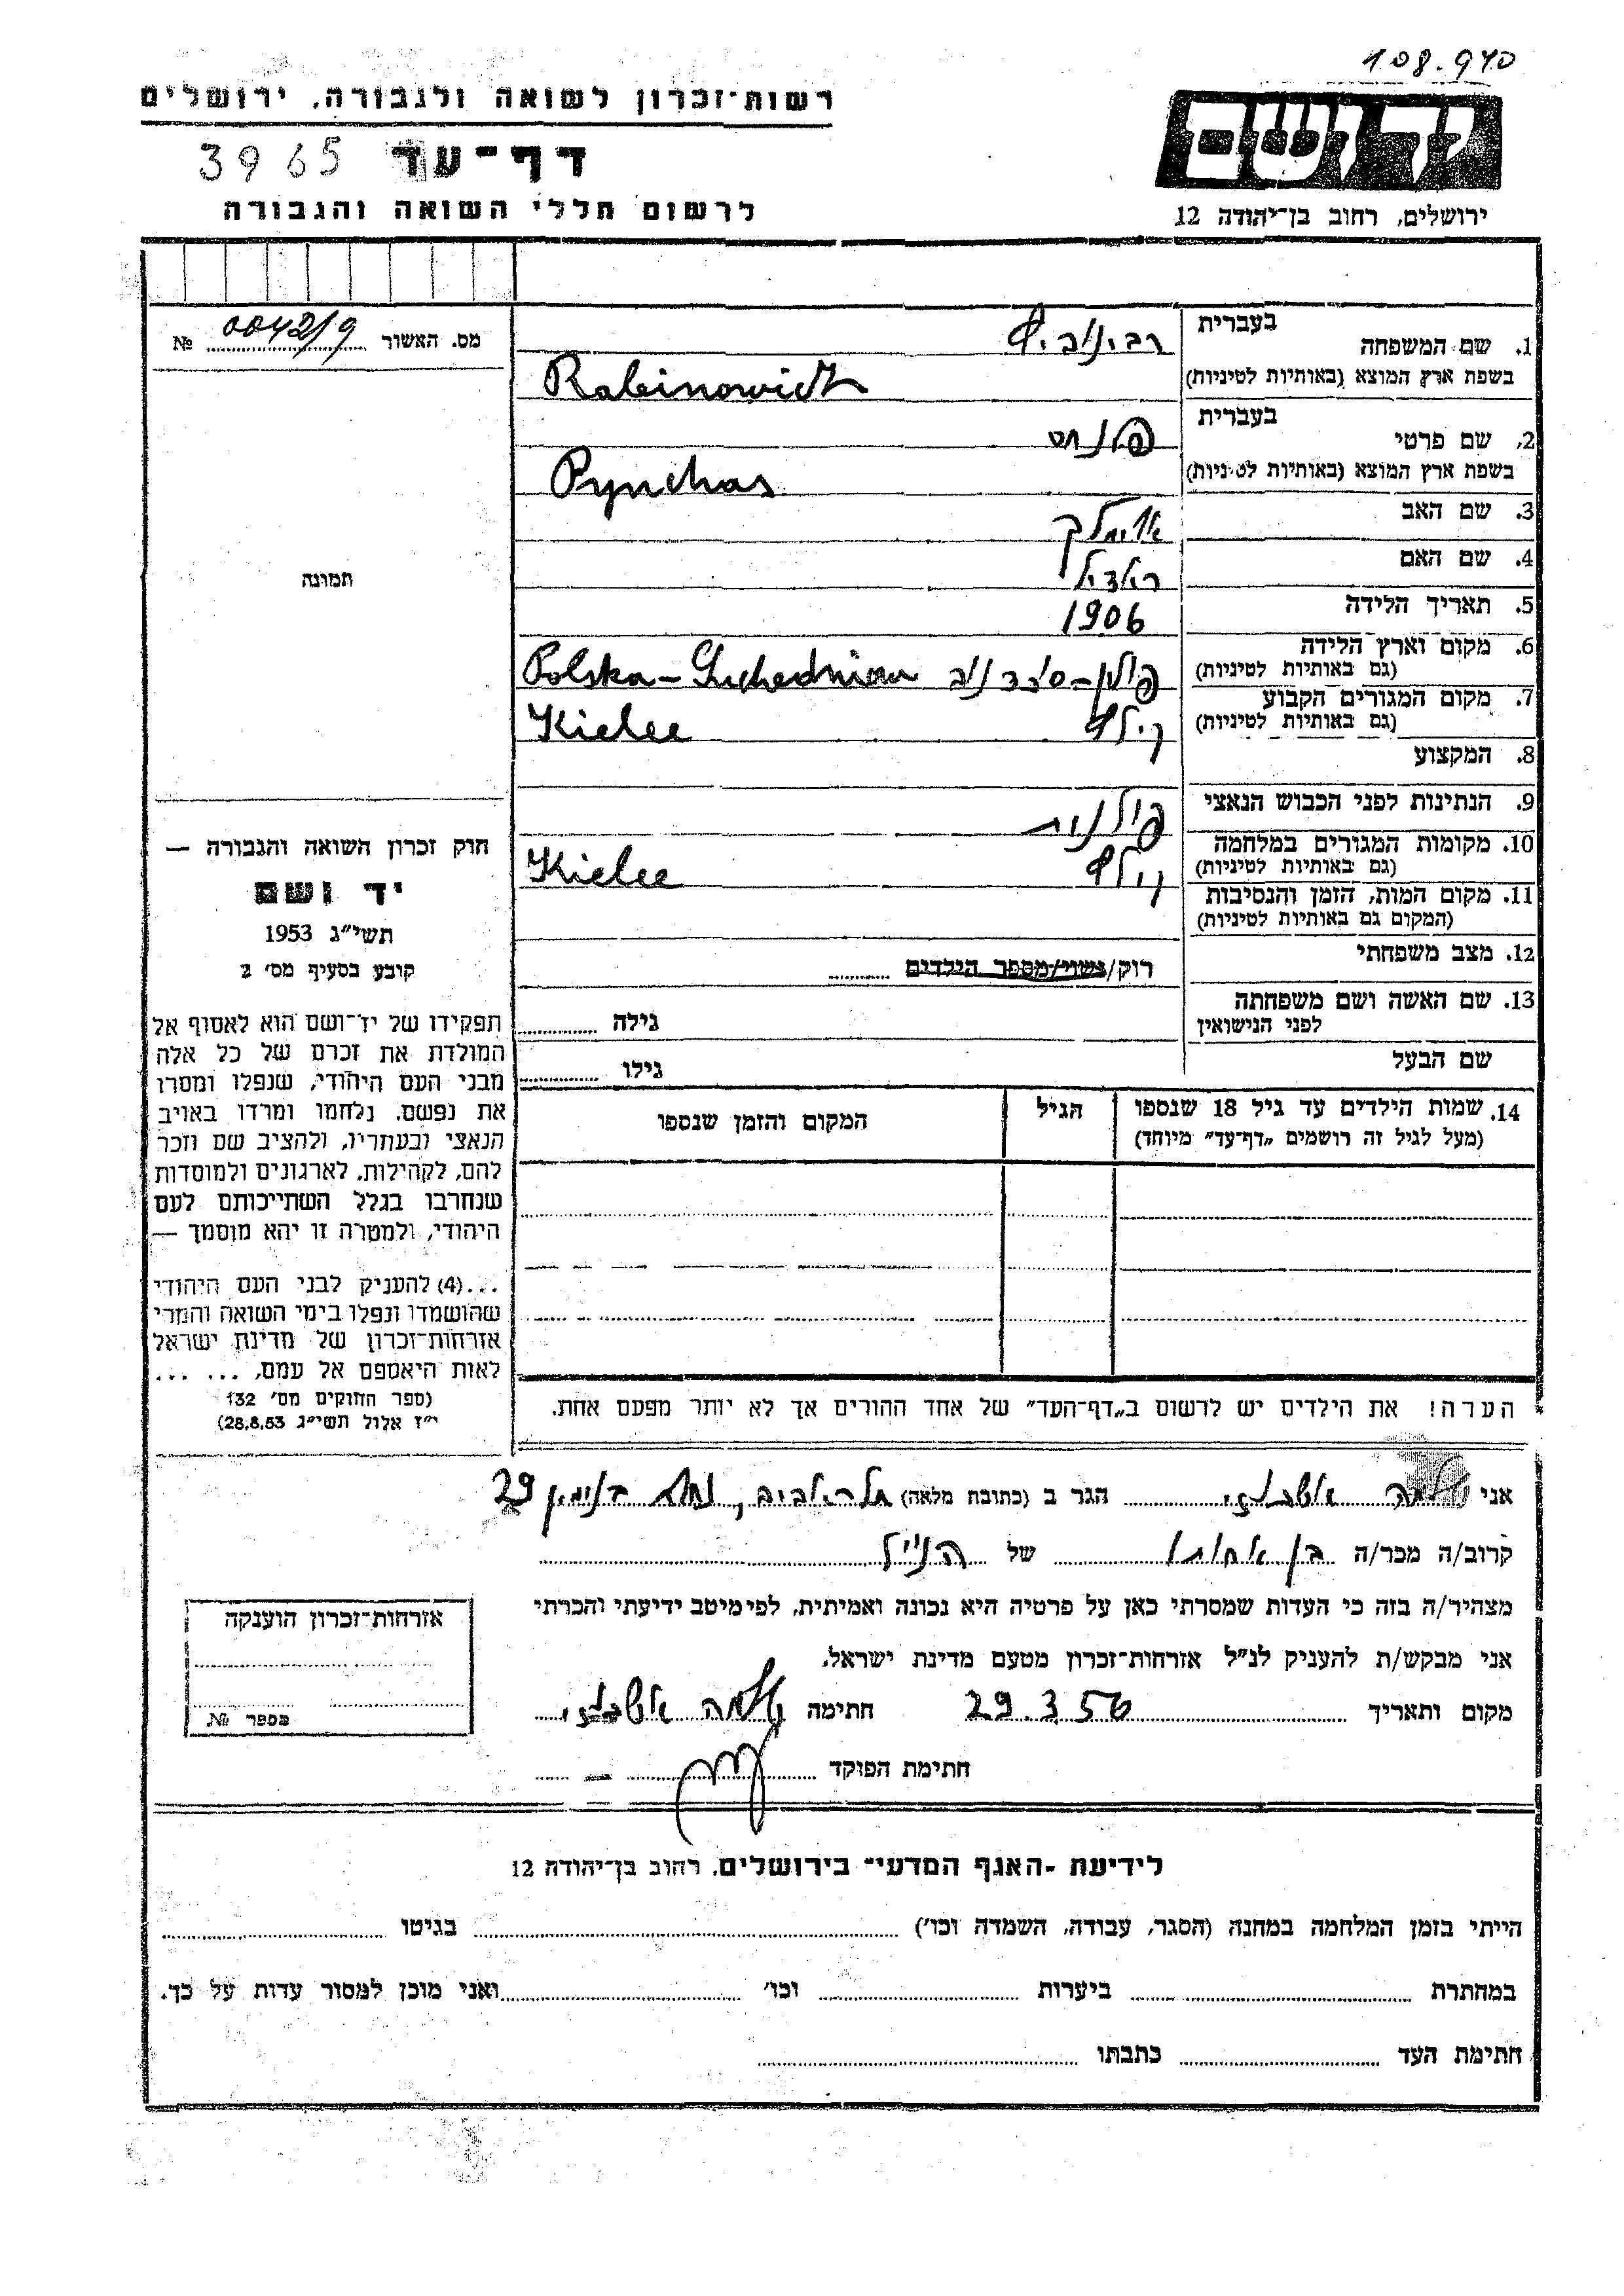 108.940
רשות־זכרון לשואה ולגבורה, ירושלים
יד ושם
דף־עד 3965
לרשום חללי השואה והגבורה
ירושלים, רחוב בן־יהודה 12
בעברית
1. שם המשפחה
רבינוביץ
בשפת ארץ המוצא (באותיות לטיניות)
Rabinowich
מס. האשור 0042/9 №
בעברית
2. שם פרטי
פנחס
בשפת ארץ המוצא (באותיות לטיניות)
Pynchas
3. שם האב
אלימלך
4. שם האם
תמונה
5. תאריך הלידה 1906
6. מקום וארץ הלידה
(גם באותיות לטיניות)
פולין - סוכדניוב Polska - Suchedniow
7. מקום המגורים הקבוע
(גם באותיות לטיניות)
קילץ Kielce
8. המקצוע
9. הנתינות לפני הכבוש הנאצי
פולנית
10. מקומות המגורים במלחמה
(גם באותיות לטיניות)
קילץ Kielce
11. מקום המות, הזמן והנסיבות
(המקום גם באותיות לטיניות)
12. מצב משפחתי
רוק/נשוי/מספר הילדים
13. שם האשה ושם משפחתה
לפני הנישואין
גילה
שם הבעל
גילו
14. שמות הילדים עד גיל 18 שנספו
(מעל לגיל זה רושמים „דף־עד״ מיוחד)
הגיל
המקום והזמן שנספו
חוק זכרון השואה והגבורה —
יד ושם
תשי״ג 1953
קובע בסעיף מס׳ 2
תפקידו של יד־ושם הוא לאסוף אל
המולדת את זכרם של כל אלה
מבני העם היהודי, שנפלו ומסרו
את נפשם, נלחמו ומרדו באויב
הנאצי ובעוזריו, ולהציב שם וזכר
להם, לקהילות, לארגונים ולמוסדות
שנחרבו בגלל השתייכותם לעם
היהודי, ולמטרה זו יהא מוסמך —
...(4) להעניק לבני העם היהודי
שהושמדו ונפלו בימי השואה והמרי
אזרחות־זכרון של מדינת ישראל
לאות היאספם אל עמם, ... ...
(ספר החוקים מס׳ 132
י״ז אלול תשי״ג 28.8.53)
הערה! את הילדים יש לרשום ב„דף־העד״ של אחד ההורים אך לא יותר מפעם אחת.
אני שלמה אשכנזי הגר ב (כתובת מלאה) תל־אביב, נחלת בנימין 29
קרוב/ה מכר/ה בן אחותו של הנ״ל
מצהיר/ה בזה כי העדות שמסרתי כאן על פרטיה היא נכונה ואמיתית, לפי מיטב ידיעתי והכרתי
אני מבקש/ת להעניק לנ״ל אזרחות־זכרון מטעם מדינת ישראל.
מקום ותאריך 29.3.56 חתימה שלמה אשכנזי
חתימת הפוקד
אזרחות־זכרון הוענקה
מספר №
לידיעת ־האגף המדעי־ בירושלים, רחוב בן־יהודה 12
הייתי בזמן המלחמה במחנה (הסגר, עבודה, השמדה וכו׳) בגיטו
במחתרת ביערות וכו׳ ואני מוכן למסור עדות על כך.
חתימת העד כתבתו